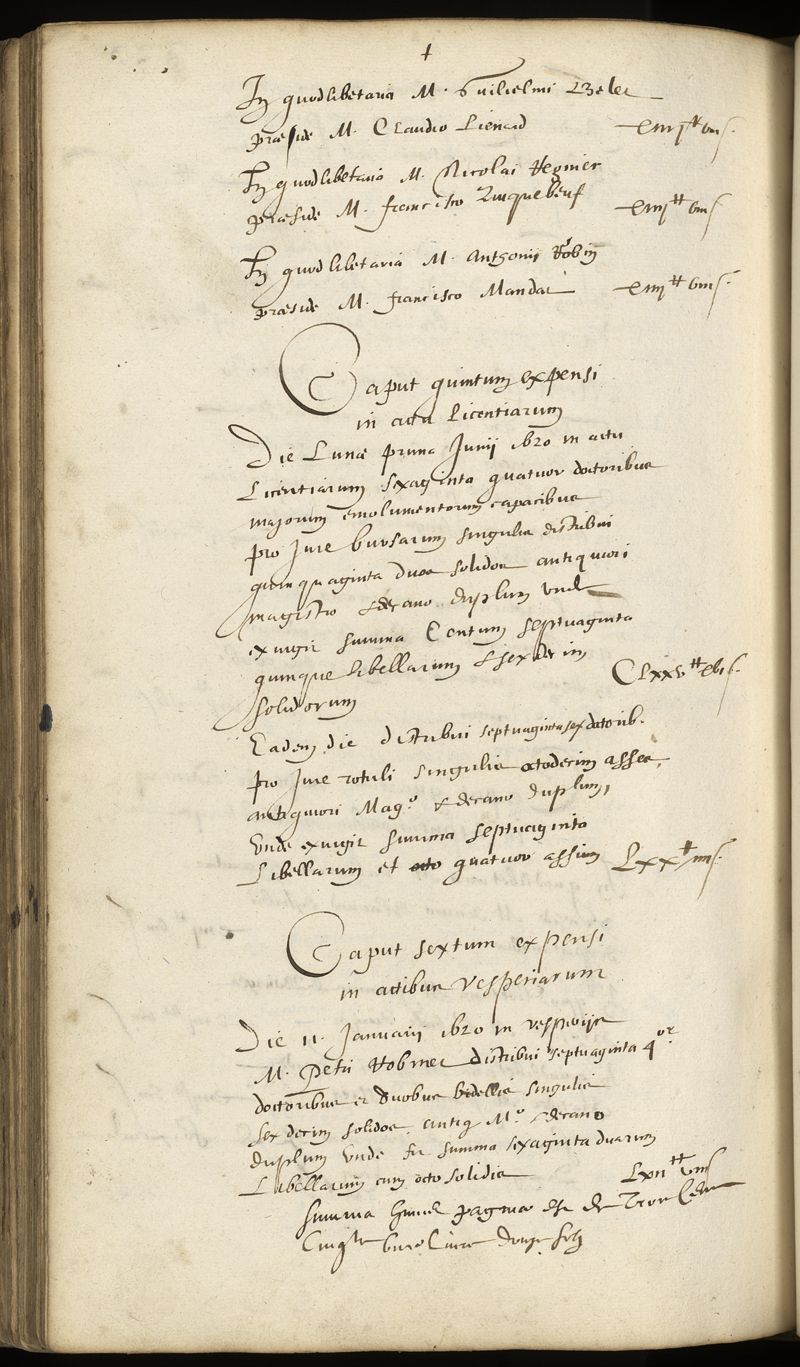 In quodlibetaria M. Guilielmi
præside M. Claudio Lienard
In quodlibetaria M. Nicolai Regnier
præside M. francisco Quuquebeuf
In quodlibetaria M. Anthonii Robin
præside M. francisco Mandat
Caput quintum expensi
in actu Licentiarum
Die Lunæ prima Junij 1620 in actu
Licentiarum sexaginta quatuor doctoribus
majorum emolumentorum capacibus
pro Jure bursarum singulis distribui
quinquaginta duos solidos antiquiori
magistro & decano duplum unde
exurgit summa Centum septuaginta
quinque libellarum & sexdecim
solidorum CLxxv ℔ xvi s.
Eadem die distribui septuaginta sex doctorib.
pro Jure rotuli singulis octodecim asses,
antiquiori Mag.o & decano duplum,
unde exurgit summa septuaginta
Libellarum et octo quatuor assium Lxx ℔ iiii s.
Caput sextum expensi
in actibus vesperiarum
Die 11. Januarij 1620 in vesperijs
M. Petri distribui septuaginta 4or
doctoribus et duobus bidellis singulis
sex decim solidos antiq M.o & decano
duplum unde fit summa sexaginta duarum
Libellarum cum octo solidis Lxii ℔ viii s
Summa paginæ est de